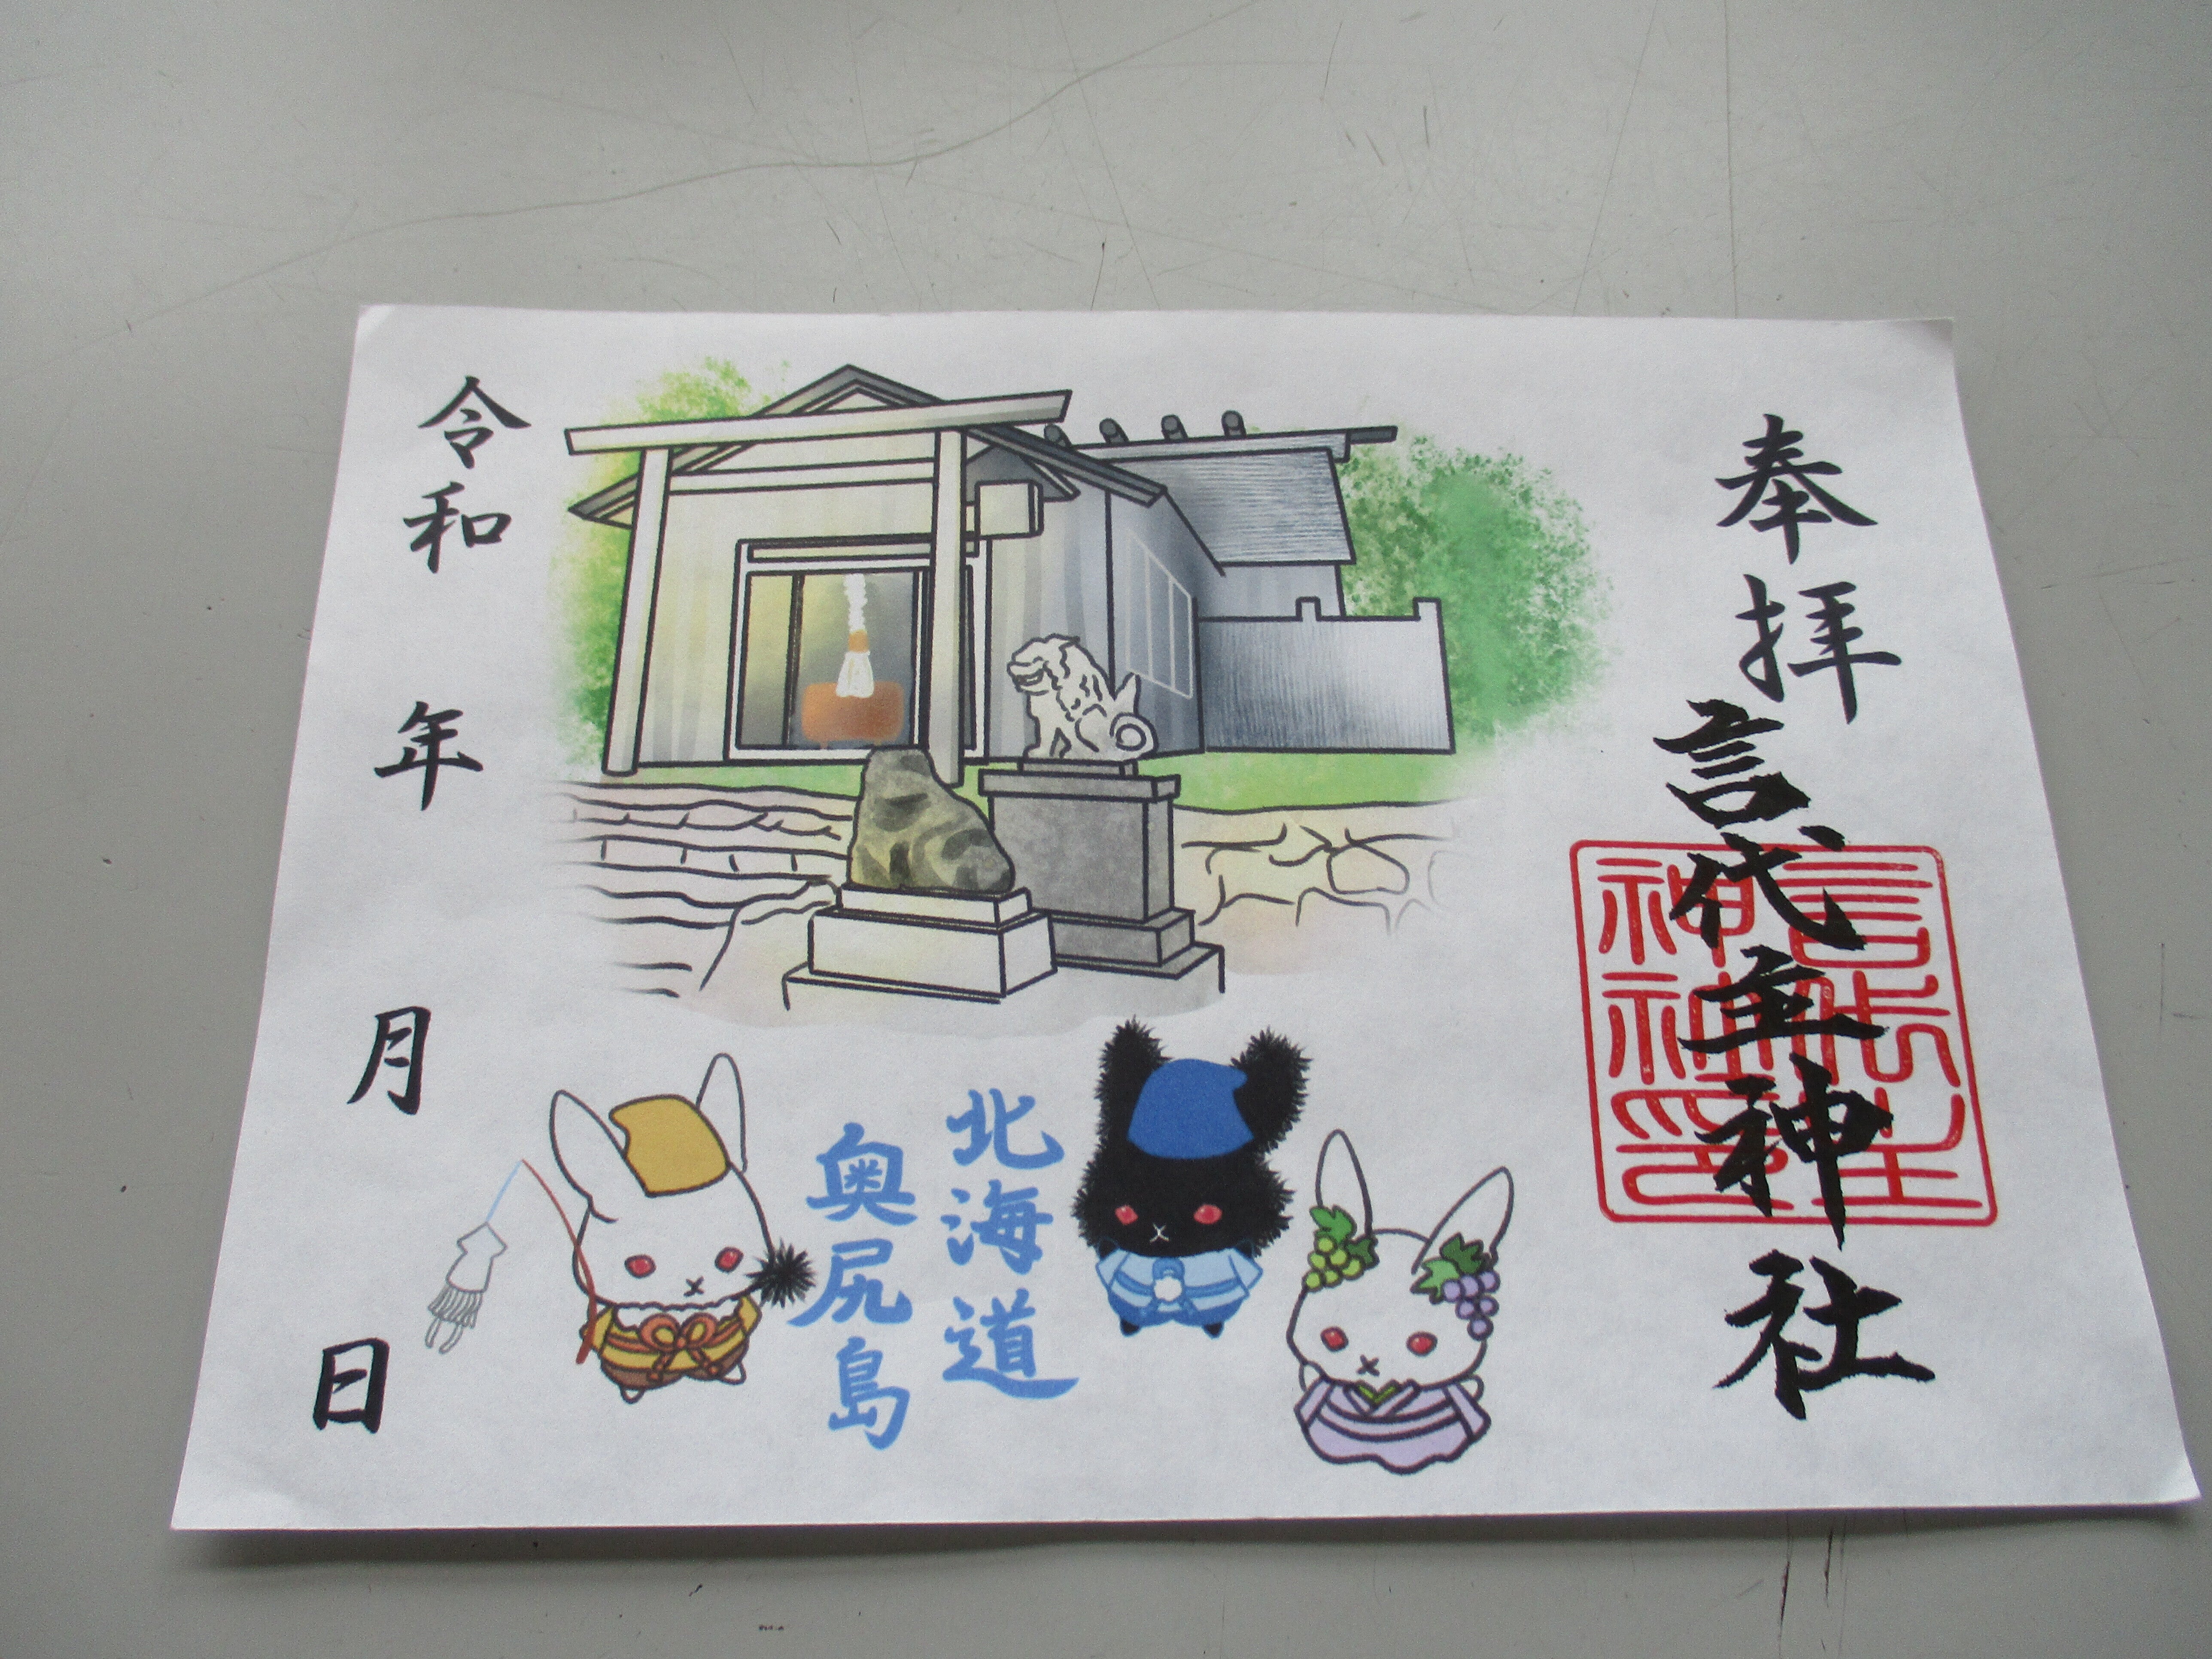 奉拝
言代主神社
言代主
神社神印
北海道
奥尻島
令和 年 月 日